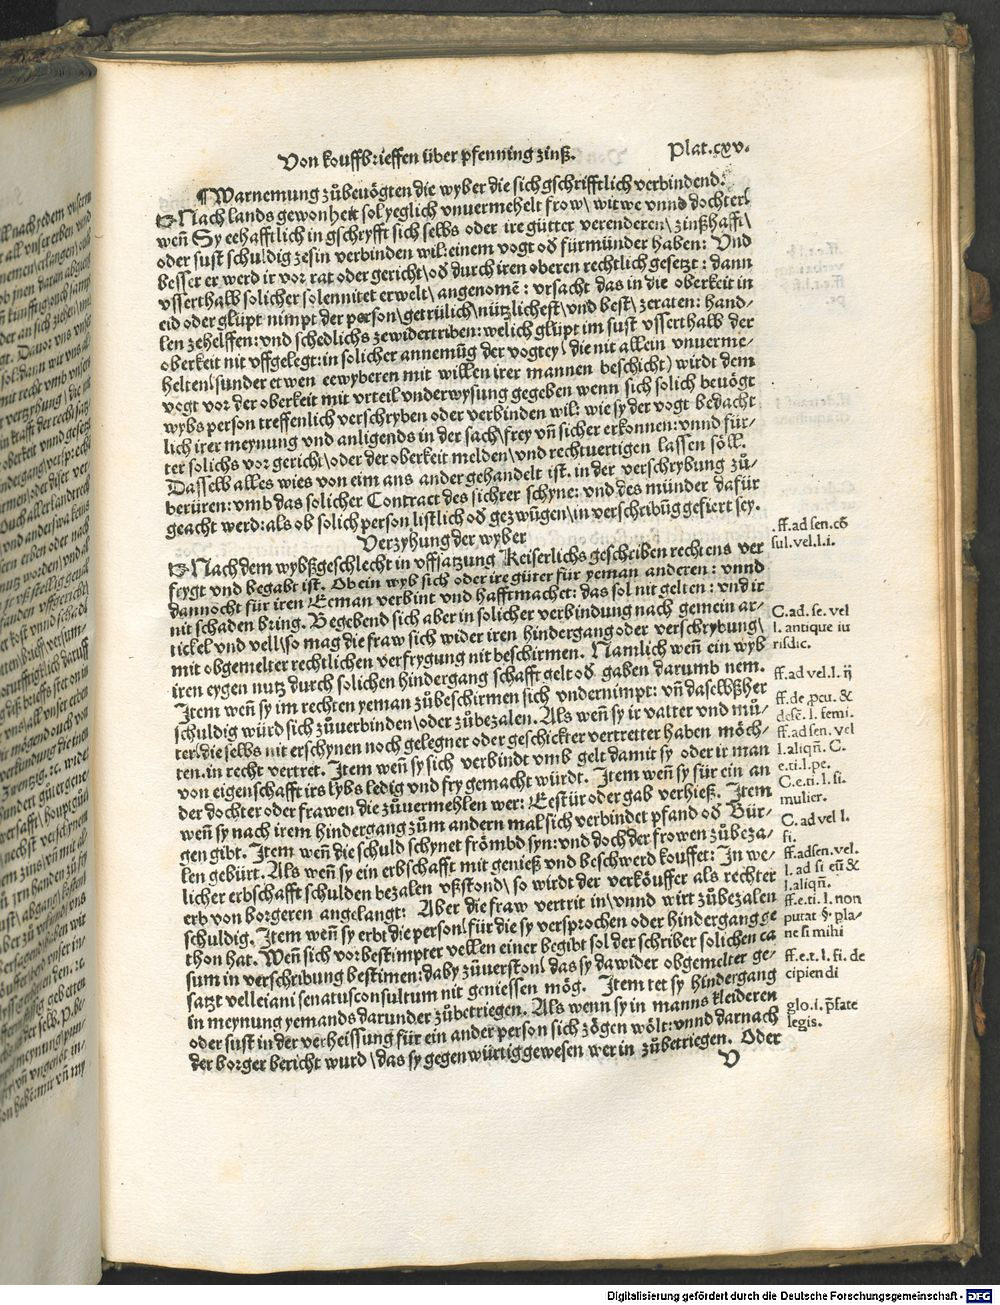 Von kouffbrieffen über pfenning zinß.
Plat.cxv.
¶Warnemung zůbevögten die wyber die sich gschrifftlich verbindend.
Nach lands gewonheit sol yeglich vnuermehelt frow\ witwe vnnd dochterl
weñ Sy eehafftlich in gschryfft sich selbs oder ire gütter verenderen\ zinßhafft\
oder sust schuldig ze sin verbinden wil: einem vogt od̄ fürmünder haben: Vnd
besser er werd ir vor rat oder gericht\ od̄ durch iren oberen rechtlich gesetzt: dann
vsserthalb solicher solennitet erwelt\ angenomē: vrsacht das in die oberkeit in
eid oder glüpt nimpt der person\ getrülich\ nützlichest\ vnd best\ zeraten: hand-
len zehelffen: vnd schedlichs zewidertriben: welich glüpt im sust vsserthalb der
oberkeit nit vffgelegt: in solicher annemūg der vogtey\ die nit allein vnuerme-
helten\ sunder etwen eewyberen mit willen irer mannen beschicht) wirdt dem
vogt vor der oberkeit mit vrteil vnderwysung gegeben wenn sich solich bevögt
wybs person treffenlich verschryben oder verbinden wil: wie sy der vogt bedacht
lich irer meynung vnd anligends in der sach\ frey vñ sicher erkonnen: vnnd für-
ter solichs vor gericht\ oder der oberkeit melden\ vnd rechtuertigen lassen söll.
Dasselb alles wies von eim ans ander gehandelt ist. in der verschrybung zů-
berüren: vmb das solicher Contract des sichrer schyne: vnd des münder dafür
geacht werd: als ob solich person listlich od̄ gezwūgen\ in verschribūg gefiert sey.
Verzyhung der wyber
Nach dem wybßgeschlecht in vffsatzung Keiserlichs geschriben rechtens ver
freygt vnd begabt ist. Ob ein wyb sich oder ire gütter für yeman anderen: vnnd
dannocht für iren Eeman verbint vnd hafft machet: das sol nit gelten: vnd ir
nit schaden bring. Begebend sich aber in solicher verbindung nach gemein ar-
tickel vnd vell\ so mag die fraw sich wider iren hindergang oder verschrybung\
mit obgemelter rechtlichen verfrygung nit beschirmen. Namlich weñ ein wyb
iren eygen nutz durch solichen hindergang schafft gelt od̄ gaben darumb nem.
Item weñ sy im rechten yeman zůbeschirmen sich vndernimpt: vñ daselbßher
schuldig würd sich zůverbinden\ oder zůbezalen. Als weñ sy ir vatter vnd mů-
ter\ die selbs nit erschynen noch gelegner oder geschickter vertretter haben möch-
ten. in recht vertret. Item weñ sy sich verbindt vmb gelt damit sy oder ir man
von eigenschafft irs lybs ledig vnd fry gemacht würdt. Item weñ sy für ein an
der dochter oder frawen die zůvermehlen wer: Eestür oder gab verhieß. Item
weñ sy nach irem hindergang zům andern mal sich verbindet pfand od̄ Bür-
gen gibt. Item weñ die schuld schynet frömbd syn: vnd doch der frowen zůbeza-
len gebürt. Als weñ sy ein erbschafft mit genieß vnd beschwerd kouffet: In we-
licher erbschafft schulden bezalen vßstond\ so wirdt der verköuffer als rechter
erb von borgeren angelangt: Aber die fraw vertrit in\ vnnd wirt zůbezalen
schuldig. Item weñ sy erbt die person\ für die sy versprochen oder hindergang ge
thon hat. Weñ sich vorbestimpter vellen einer begibt sol der schriber solichen ca
sum in verschribung bestimen: daby zůverston\ das sy dawider obgemelter ge-
satzt velleiani senatusconsultum nit geniessen mög. Item tet sy hindergang
in meynung yemands darunder zůbetriegen. Als wenn sy in manns kleideren
oder sust in der verheissung für ein ander person sich zögen wölt: vnnd darnach
der borger bericht wurd\ das sy gegenwürtig gewesen wer in zůbetriegen. Oder
V
ff. ad sen. cō
sul. vel. l. i.
C. ad. se. vel
l. antique iu
risdic.
ff. ad vel. l. ij
ff. de pcu. &
defē. l. femi.
ff. ad sen. vel
l. aliqñ. C.
e. ti. l. pe.
C. e. ti. l. si.
mulier.
C. ad vel l.
fi.
ff. ad sen. vel.
l. ad si eū &
l. aliqñ.
ff. e. ti. l. non
putat §. pla-
ne si mihi
ff. e. t. l. si. de
cipiendi
glo. i. p̄fate
legis.
Digitalisierung gefördert durch die Deutsche Forschungsgemeinschaft - DFG